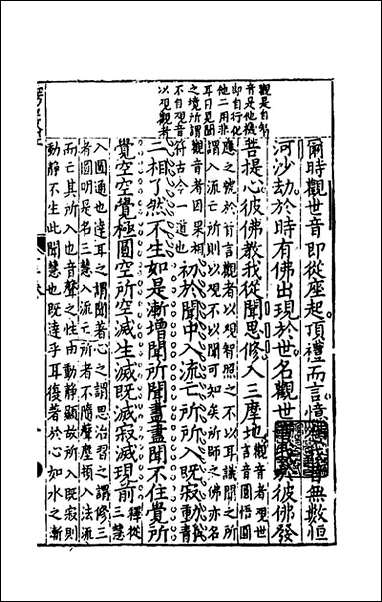 觀是自行
音是他機
即自行化
他二用非
耳目見聞
之境所謂
不自觀音
以觀觀者
爾時觀世音即從座起頂禮而言憶我昔無數恒
河沙劫於時有佛出現於世名觀世於彼佛發
菩提心彼佛教我從聞思修入三摩地
觀音者觀世
言音圓悟圓
應之號於前言觀者以觀智照之不以耳識聞之所
謂入流亡所則以觀不以聞可知矣所師之佛亦名
觀音者因果相
符古今一道也
初於聞中入流亡所所入既寂動靜
二相了然不生如是漸增聞所聞盡盡聞不住覺所
覺空空覺極圓空所空滅生滅既滅寂滅現前
釋從
三慧
入圓通也達耳之謂聞著心之謂思治習之謂修三
者圓明是名三慧入流亡所者不隨聲塵頓入法流
而亡其所入也音聲之性由動靜顯故所入既寂則
動靜不生此聞慧也既達乎耳復著於心如水之漸